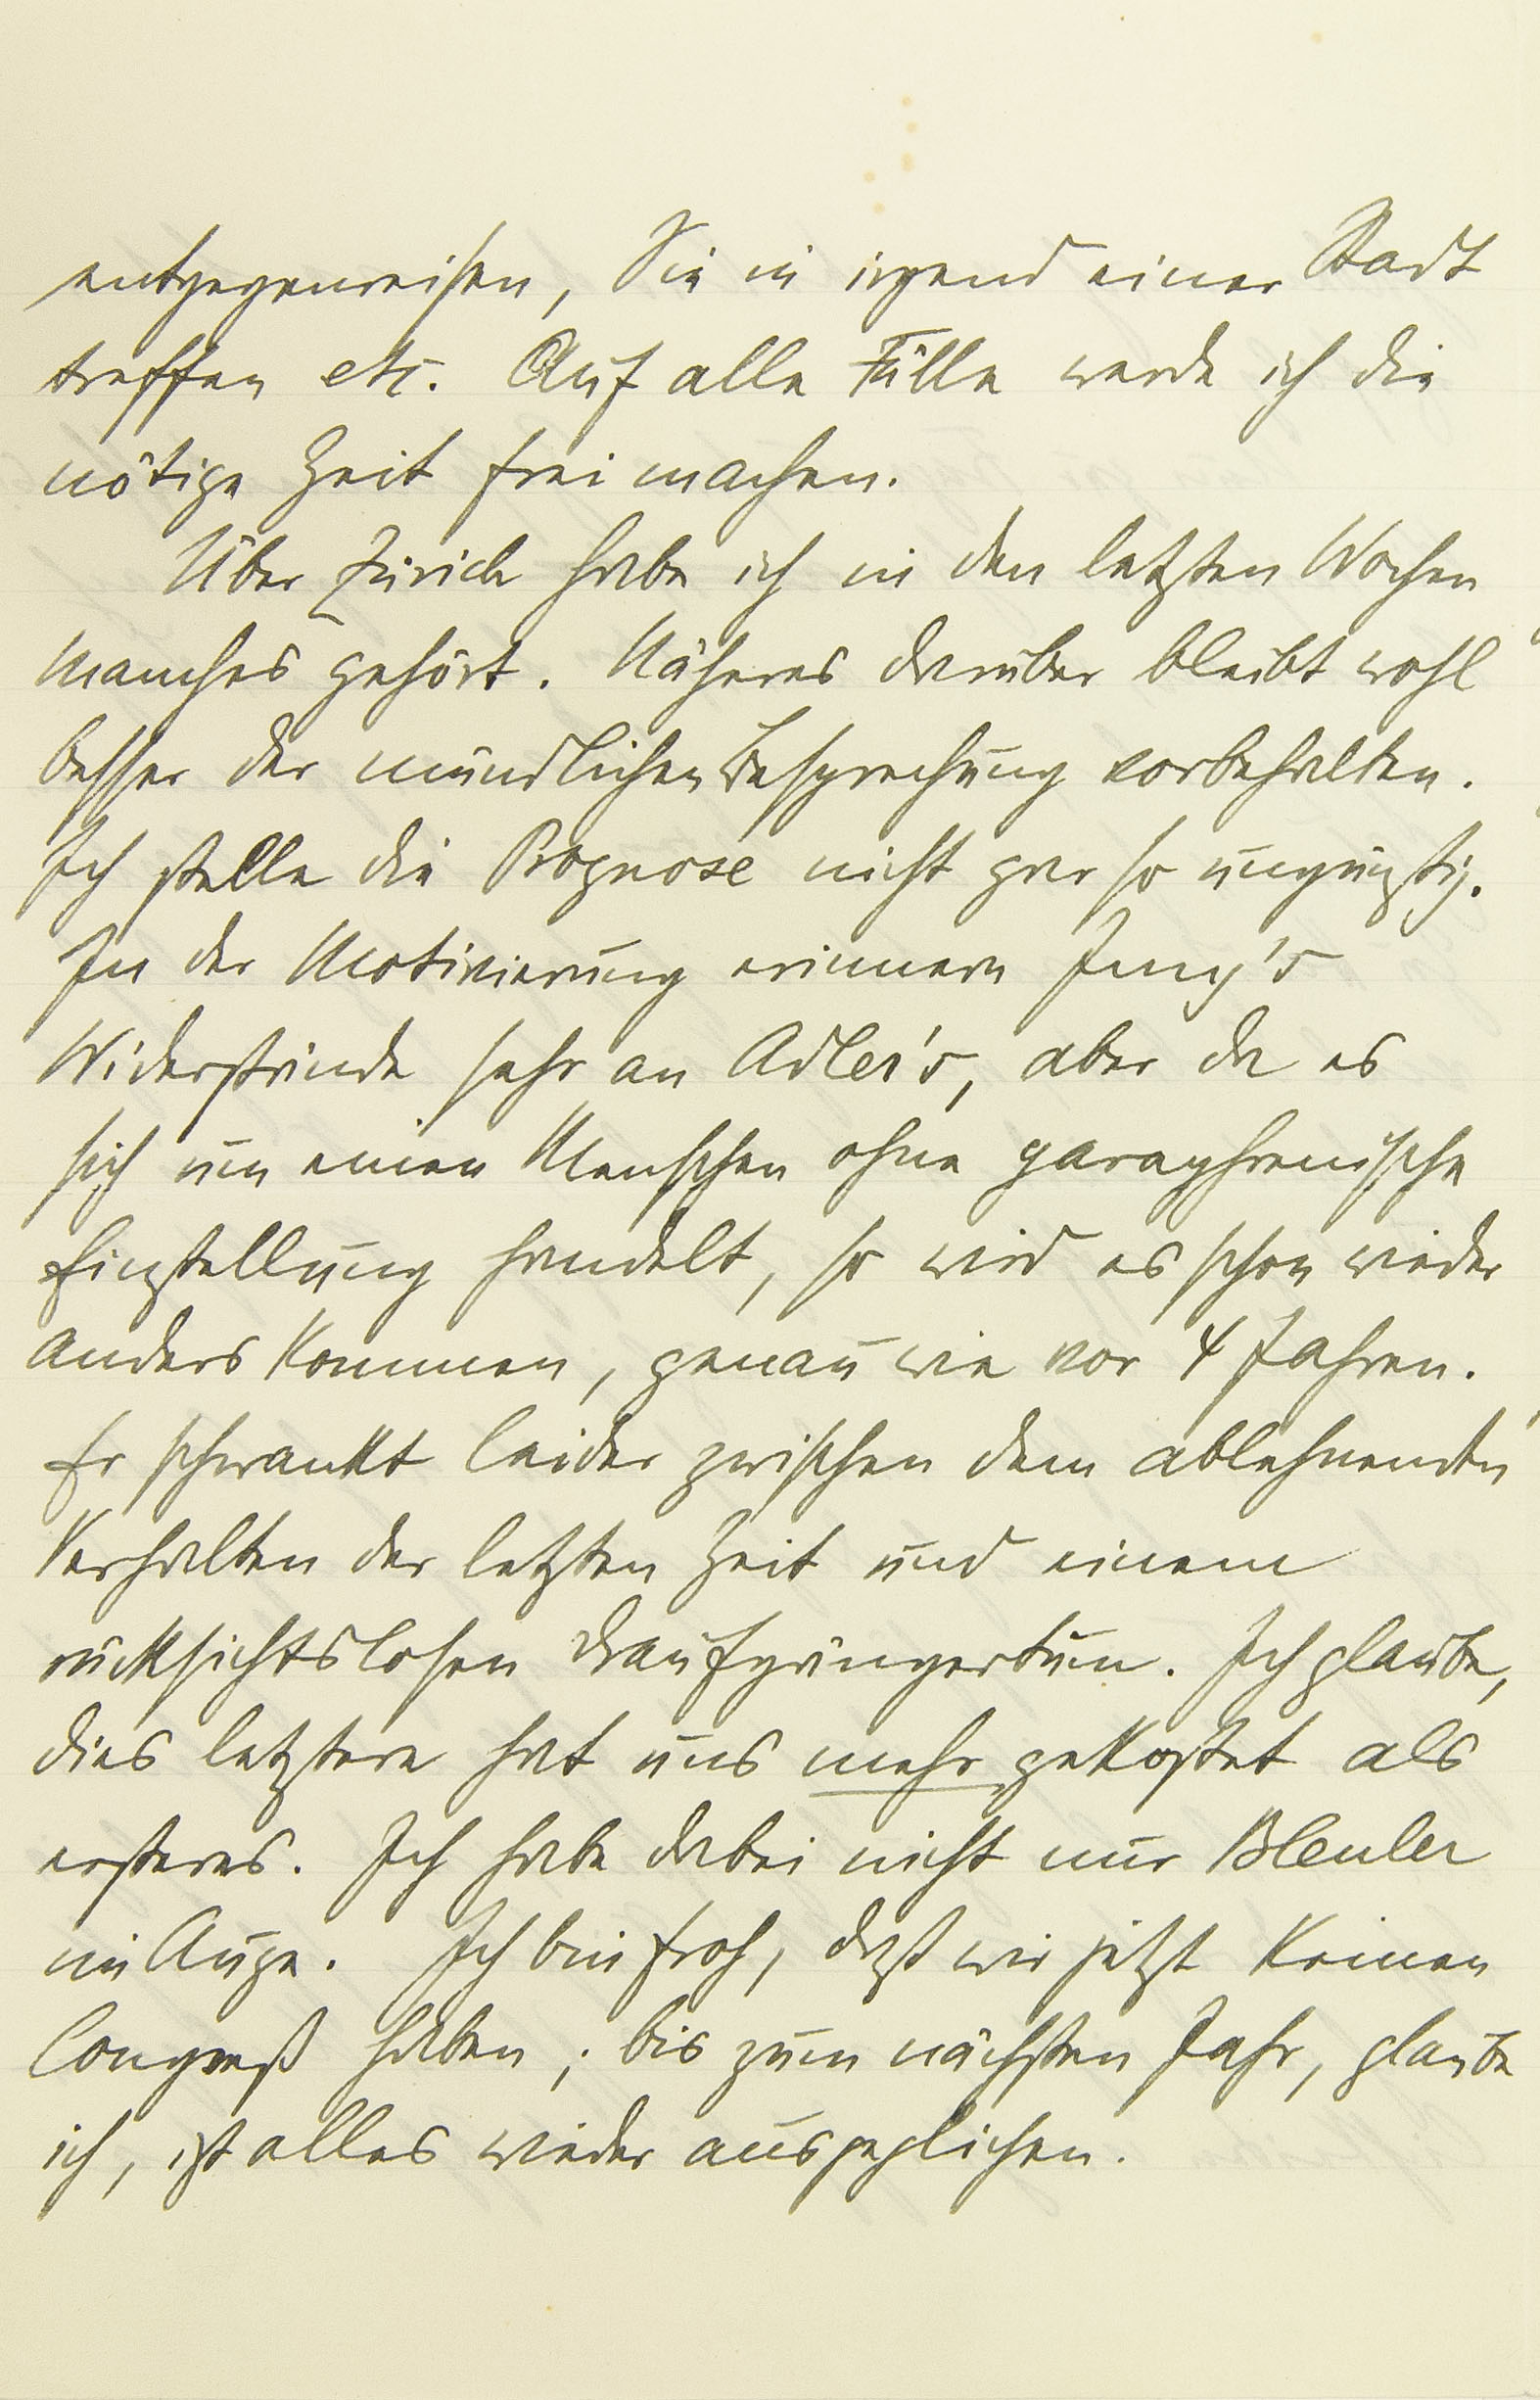 entgegenreisen, Sie in irgend einer Stadt
treffen etc. Auf alle Fälle werde ich die
nötige Zeit frei machen.
Über Zürich habe ich in den letzten Wochen
Manches gehört. Näheres darüber bleibt wohl
besser der mündlichen Besprechung vorbehalten.
Ich stelle die Prognose nicht gar so ungünstig.
In der Motivierung erinnern Jung's
Widerstände sehr an Adler's, aber da es
sich um einen Menschen ohne paraphrenische
Einstellung handelt, so wird es schon wieder
anders kommen, genau wie vor 4 Jahren.
Er schwankt leider zwischen dem ablehnenden
Verhalten der letzten Zeit und einem
rücksichtslosen Draufgängertum. Ich glaube,
dies letztere hat uns mehr gekostet als
ersteres. Ich habe dabei nicht nur Bleuler
im Auge. Ich bin froh, daß wir jetzt keinen
Congreß haben; bis zum nächsten Jahr, glaube
ich, ist alles wieder ausgeglichen.